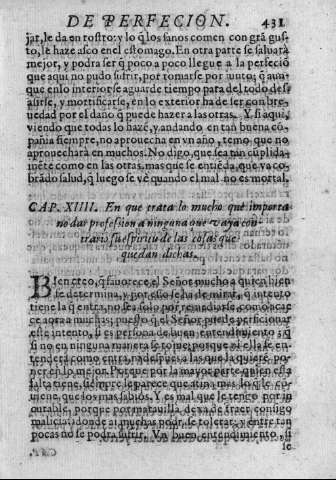 DE PERFECION. 431
jar, le da en rostro: y lo q̃ los sanos comen con grã gus-
to, le haze asco en el estomago. En otra parte se saluara
mejor, y podra ser q̃ poco a poco llegue a la perfeciõ
que aqui no pudo sufrir, por tomarse por junto; q̃ aun-
que en lo interior se aguarde tiempo para del todo des-
asirse, y mortificarse, en lo exterior ha de ser con bre-
uedad por el daño q̃ puede hazer a las otras. Y si aqui,
viendo que todas lo hazẽ, y andando en tan buena cõ-
pañia siempre, no aprouecha en vn año, temo que no
aprouechará en muchos. No digo, que sea tan cũplida-
mẽte como en las otras, mas que se entiẽda, que va co-
brãdo salud, q̃ luego se vè quando el mal no es mortal.
CAP. XIIII. En que trata lo mucho que importa
no dar profession a ninguna que vaya con-
trario su espiritu de las cosas que
quedan dichas.
BIen creo, q̃ fauorece el Señor mucho a quien biẽn
se determina, y por esso se ha de mirar, q̃ intento
tiene la q̃ entra, no sea solo por remediarse, como acõte-
ce aora a muchas; puesto q̃ el Señor puede perficionar
este intento, si es persona de buen entendimiento; q̃
si no en ninguna manera se tome; porque ni ella se en-
tenderà como entra, ni despues a las que la quisierẽ po-
ner en lo mejor. Porque por la mayor parte quien esta
falta tiene, siempre le parece que atina mas lo q̃ le cõ-
uiene, que los mas sabios. Y es mal que le tengo por in-
curable, porque por marauilla dexa de traer consigo
malicia; adonde ai muchas podrase tolerar, y entre tan
pocas no se podra sufrir. Vn buen entendimiento, si
se